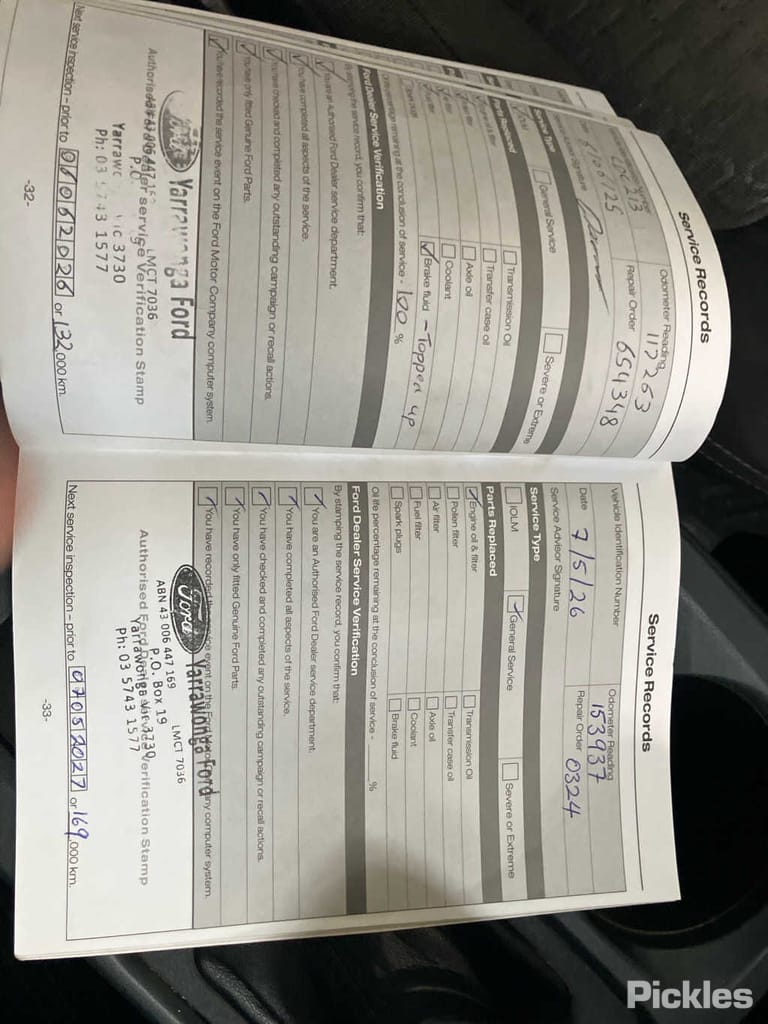 Service Records
Odometer Reading
117263
Repair Order
654348
Service Type
General Service
Severe or Extreme
Parts Replaced
Transmission Oil
Transfer case oil
Axle oil
Coolant
Brake fluid - Topped up
Oil life percentage remaining at the conclusion of service - 100 %
Ford Dealer Service Verification
By stamping the service record, you confirm that:
You are an Authorised Ford Dealer service department.
You have completed all aspects of the service.
You have checked and completed any outstanding campaign or recall actions.
You have only fitted Genuine Ford Parts.
You have recorded the service event on the Ford Motor Company computer system.
Yarrawonga Ford
LMCT 7036
Service Verification Stamp
3730
1577
Next service inspection – prior to 06062026 or 132,000 km.
-32-
Service Records
Vehicle Identification Number
Odometer Reading
153937
Date 7/5/26
Repair Order 0324
Service Advisor Signature
Service Type
IOLM
General Service
Severe or Extreme
Parts Replaced
Engine oil & filter
Transmission Oil
Pollen filter
Transfer case oil
Air filter
Axle oil
Fuel filter
Coolant
Spark plugs
Brake fluid
Oil life percentage remaining at the conclusion of service - %
Ford Dealer Service Verification
By stamping the service record, you confirm that:
You are an Authorised Ford Dealer service department.
You have completed all aspects of the service.
You have checked and completed any outstanding campaign or recall actions.
You have only fitted Genuine Ford Parts.
You have recorded the service event on the Ford Motor Company computer system.
Ford Yarrawonga Ford
LMCT 7036
ABN 43 006 447 169
P.O. Box 19
Yarrawonga Vic 3730
Ph: 03 5743 1577
Authorised Ford Dealer Service Verification Stamp
Next service inspection – prior to 07052027 or 169,000 km.
-33-
Pickles